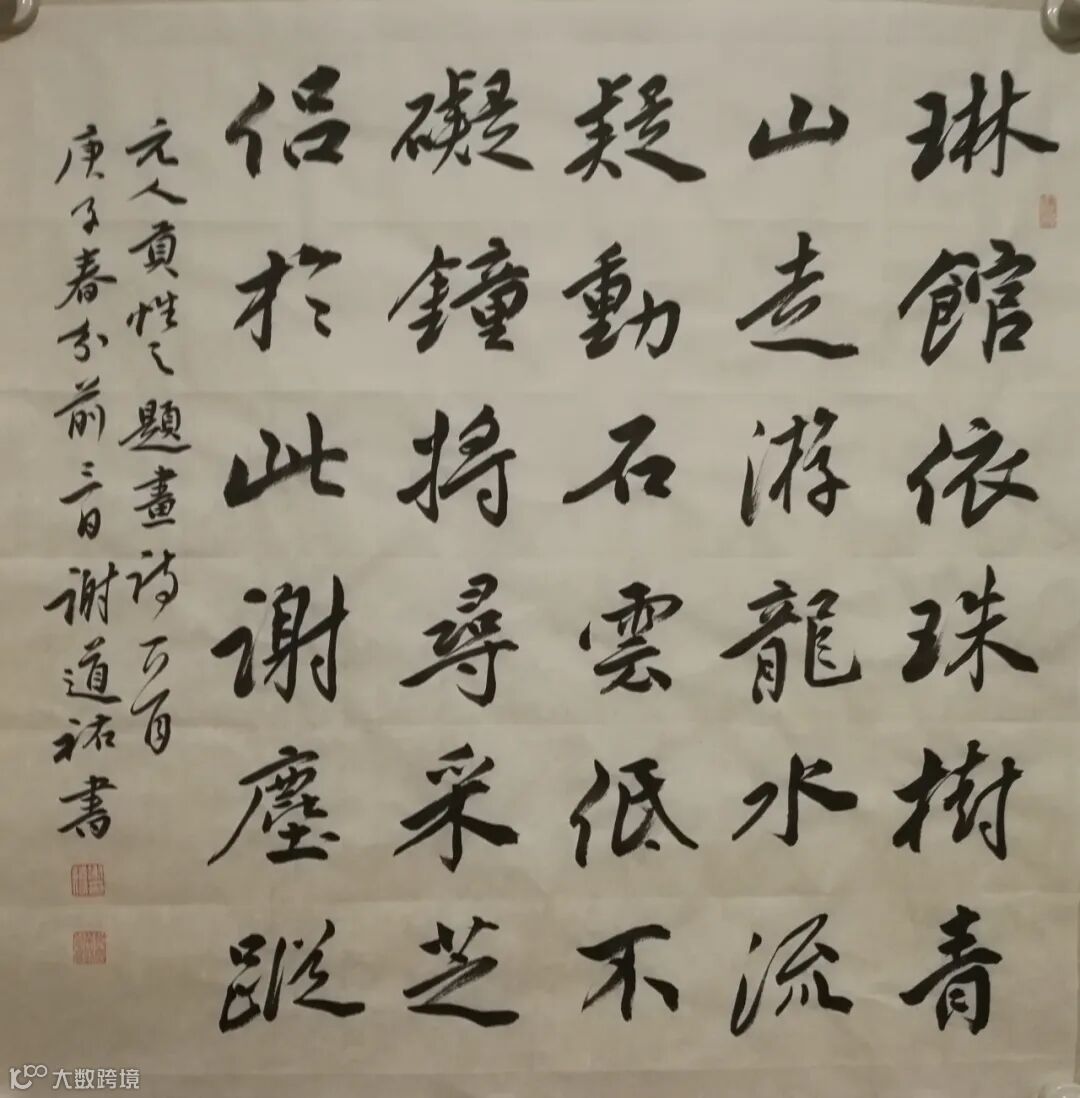 琳館依珠樹青
山走游龍水流
疑動石雲低不
礙鐘將尋采芝
侣於此謝塵蹤
元人貢性之題畫詩一首
庚子春分前三日謝道祐書
大数跨境